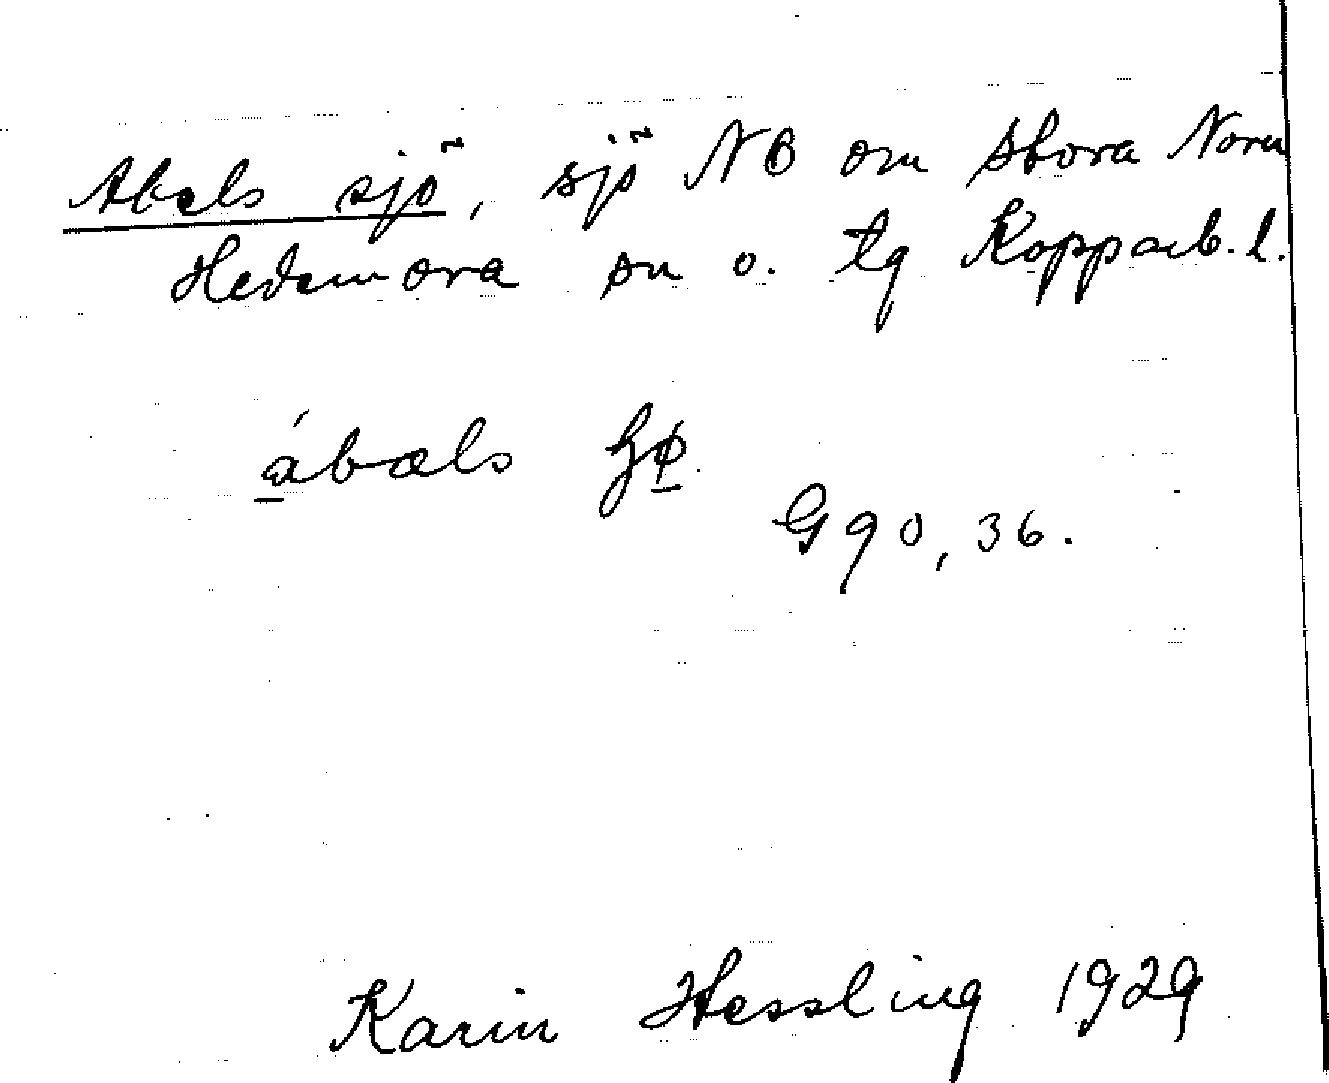 Abels sjö, sjö NB om Stora Noren
Hedemora sn o. tg Kopparb. l.
ábæls
G 90, 36.
Karin Hessling 1929